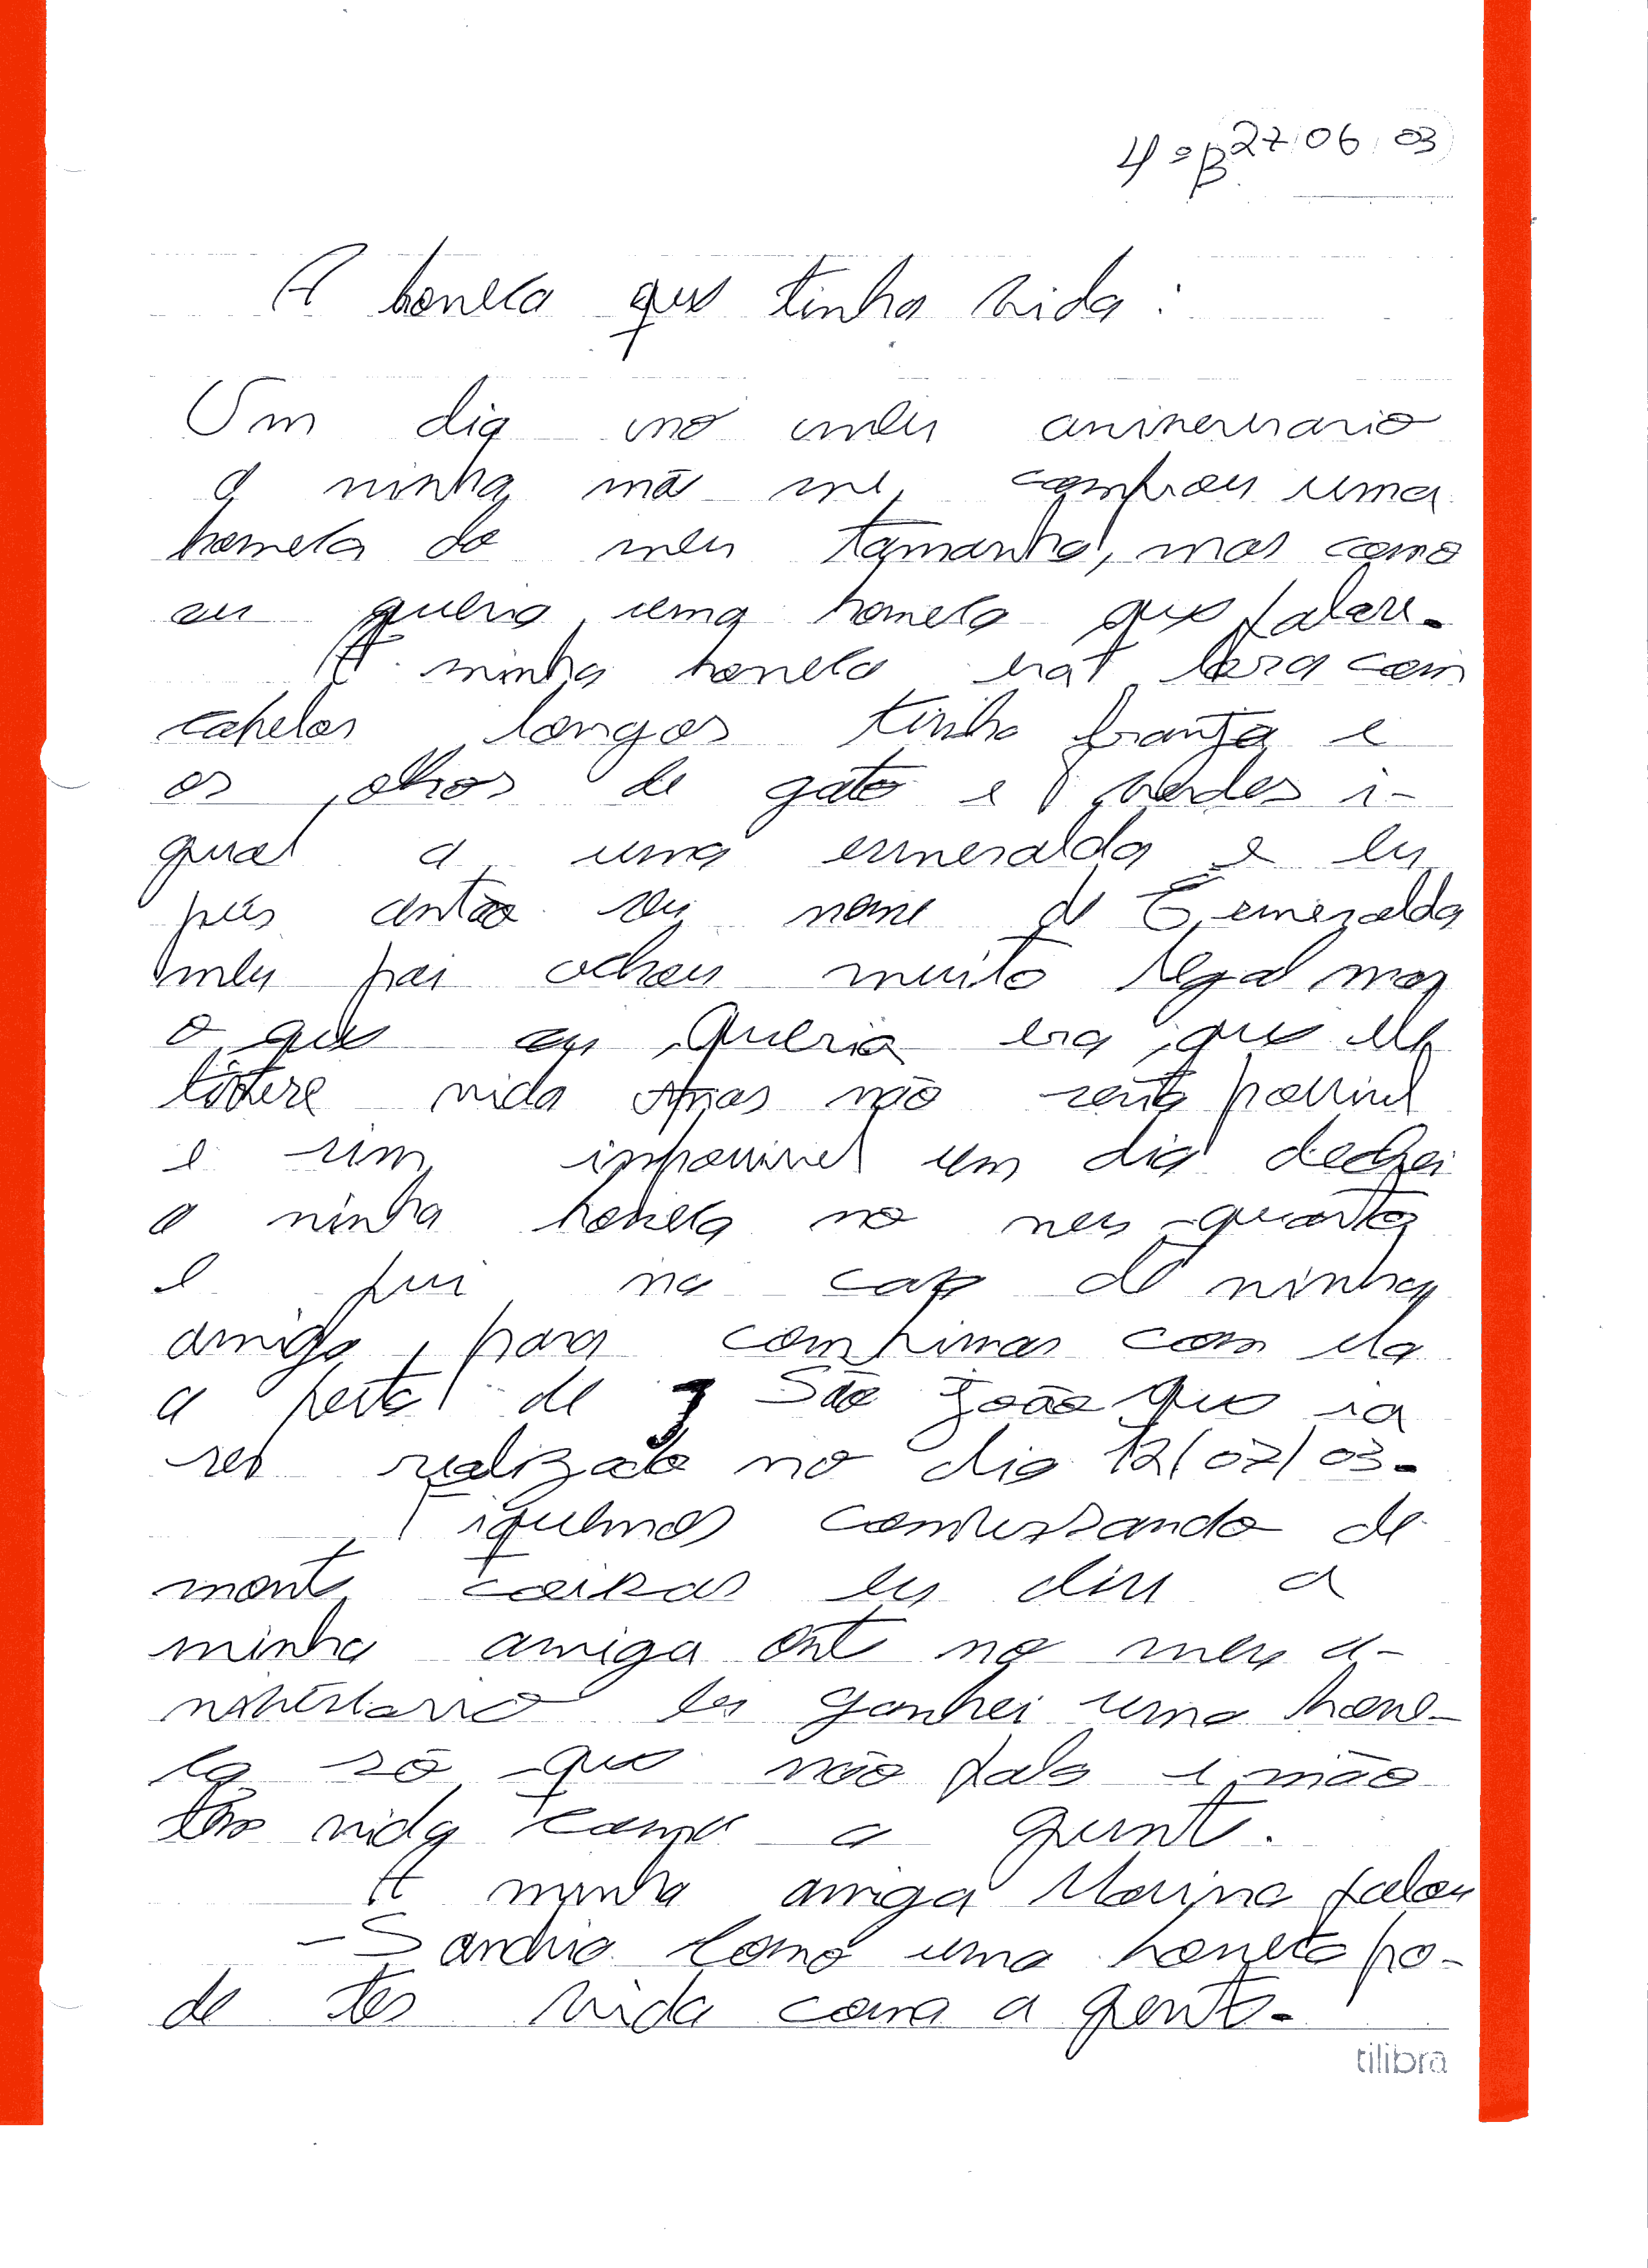 4ª B 27 06 03
A boneca que tinha vida:
Um dia no meu aniversario
a ninha mãe me comprou uma
boneca do meu tamanho, mas como
eu queria uma boneca que falase.
A minha boneca era loira com
cabelos longos tinha franja e
os olhos de gato e verdes i-
gual a uma esmeralda e eu
pus antão seu nome de Esmeralda
meu pai achou muito legal mas
o que eu queria era que ela
tivese vida mas não seria possivel
e sim impossivel um dia dechei
a ninha boneca no meu quarto
e fui na casa de ninha
amiga para combinar com ela
a festa de São João que ia
ser realizada no dia 12/07/03.
Fiquemos conversando de
monte coizas eu dise a
minha amiga onte no meu a-
niversario eu ganhei uma bone-
ca só que não fala e não
tem vida como a gente.
A minha amiga Marina falou
- Sandria como uma boneca po-
de ter vida como a gente.
tilibra